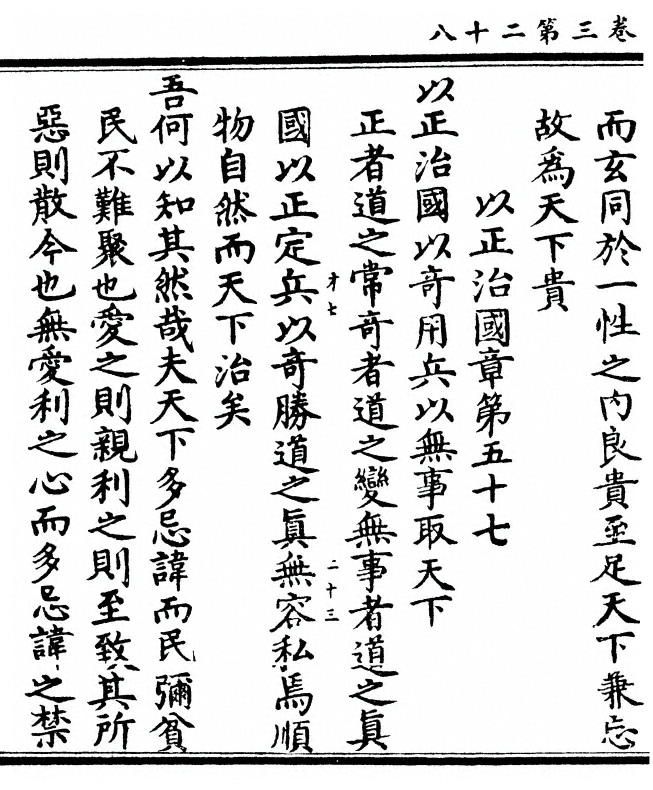 卷三第二十八
而玄同於一性之内良貴至足天下兼忘
故爲天下貴
以正治國章第五十七
以正治國以奇用兵以無事取天下
正者道之常奇者道之變無事者道之眞
才七
二十三
國以正定兵以奇勝道之眞無容私焉順
物自然而天下治矣
吾何以知其然哉夫天下多忌諱而民彌貧
民不難聚也愛之則親利之則至致其所
惡則散今也無愛利之心而多忌諱之禁